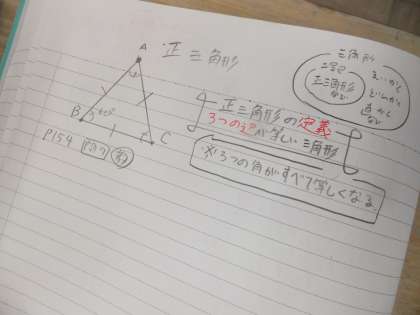 正三角形
A
B
60°
C
P154
正三角形の定義
3つの辺が等しい三角形
※3つの角がすべて等しくなる
三角形
二等辺
正三角形